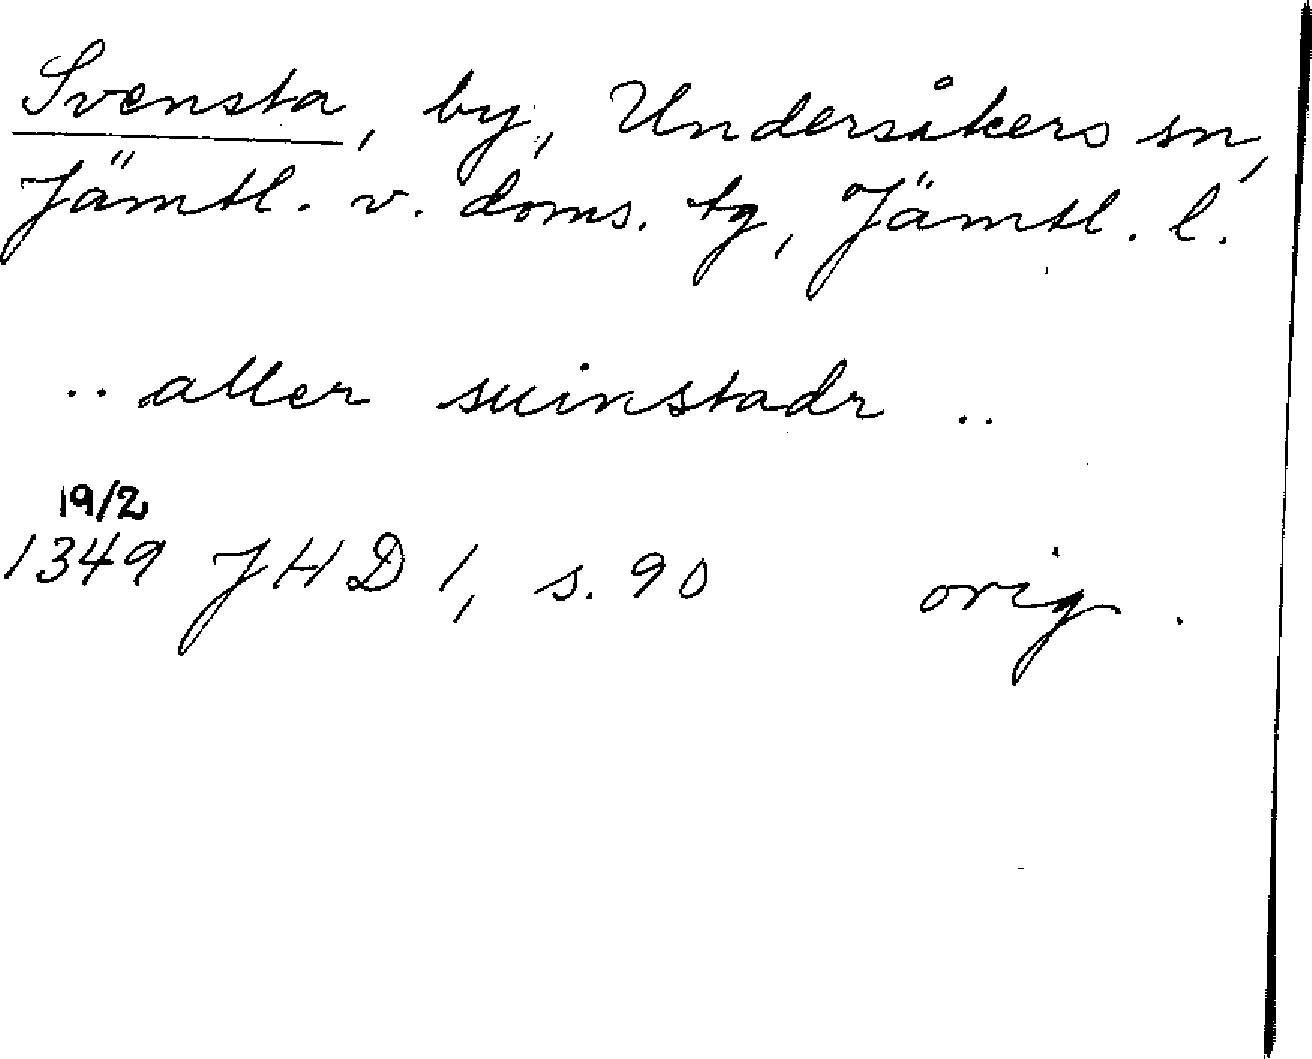 Svensta, by, Undersåkers sn,
Jämtl. v. doms. tg, Jämtl. l.
.. aller suinstadr ..
19/2
1349 JHD 1, s. 90 orig.